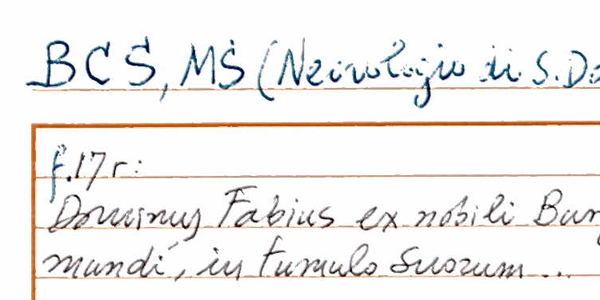 BCS, MS (Necrologio di S. Do
f. 17 r:
Dominus Fabius ex nobili Ban
mandi, in tumulo suorum...